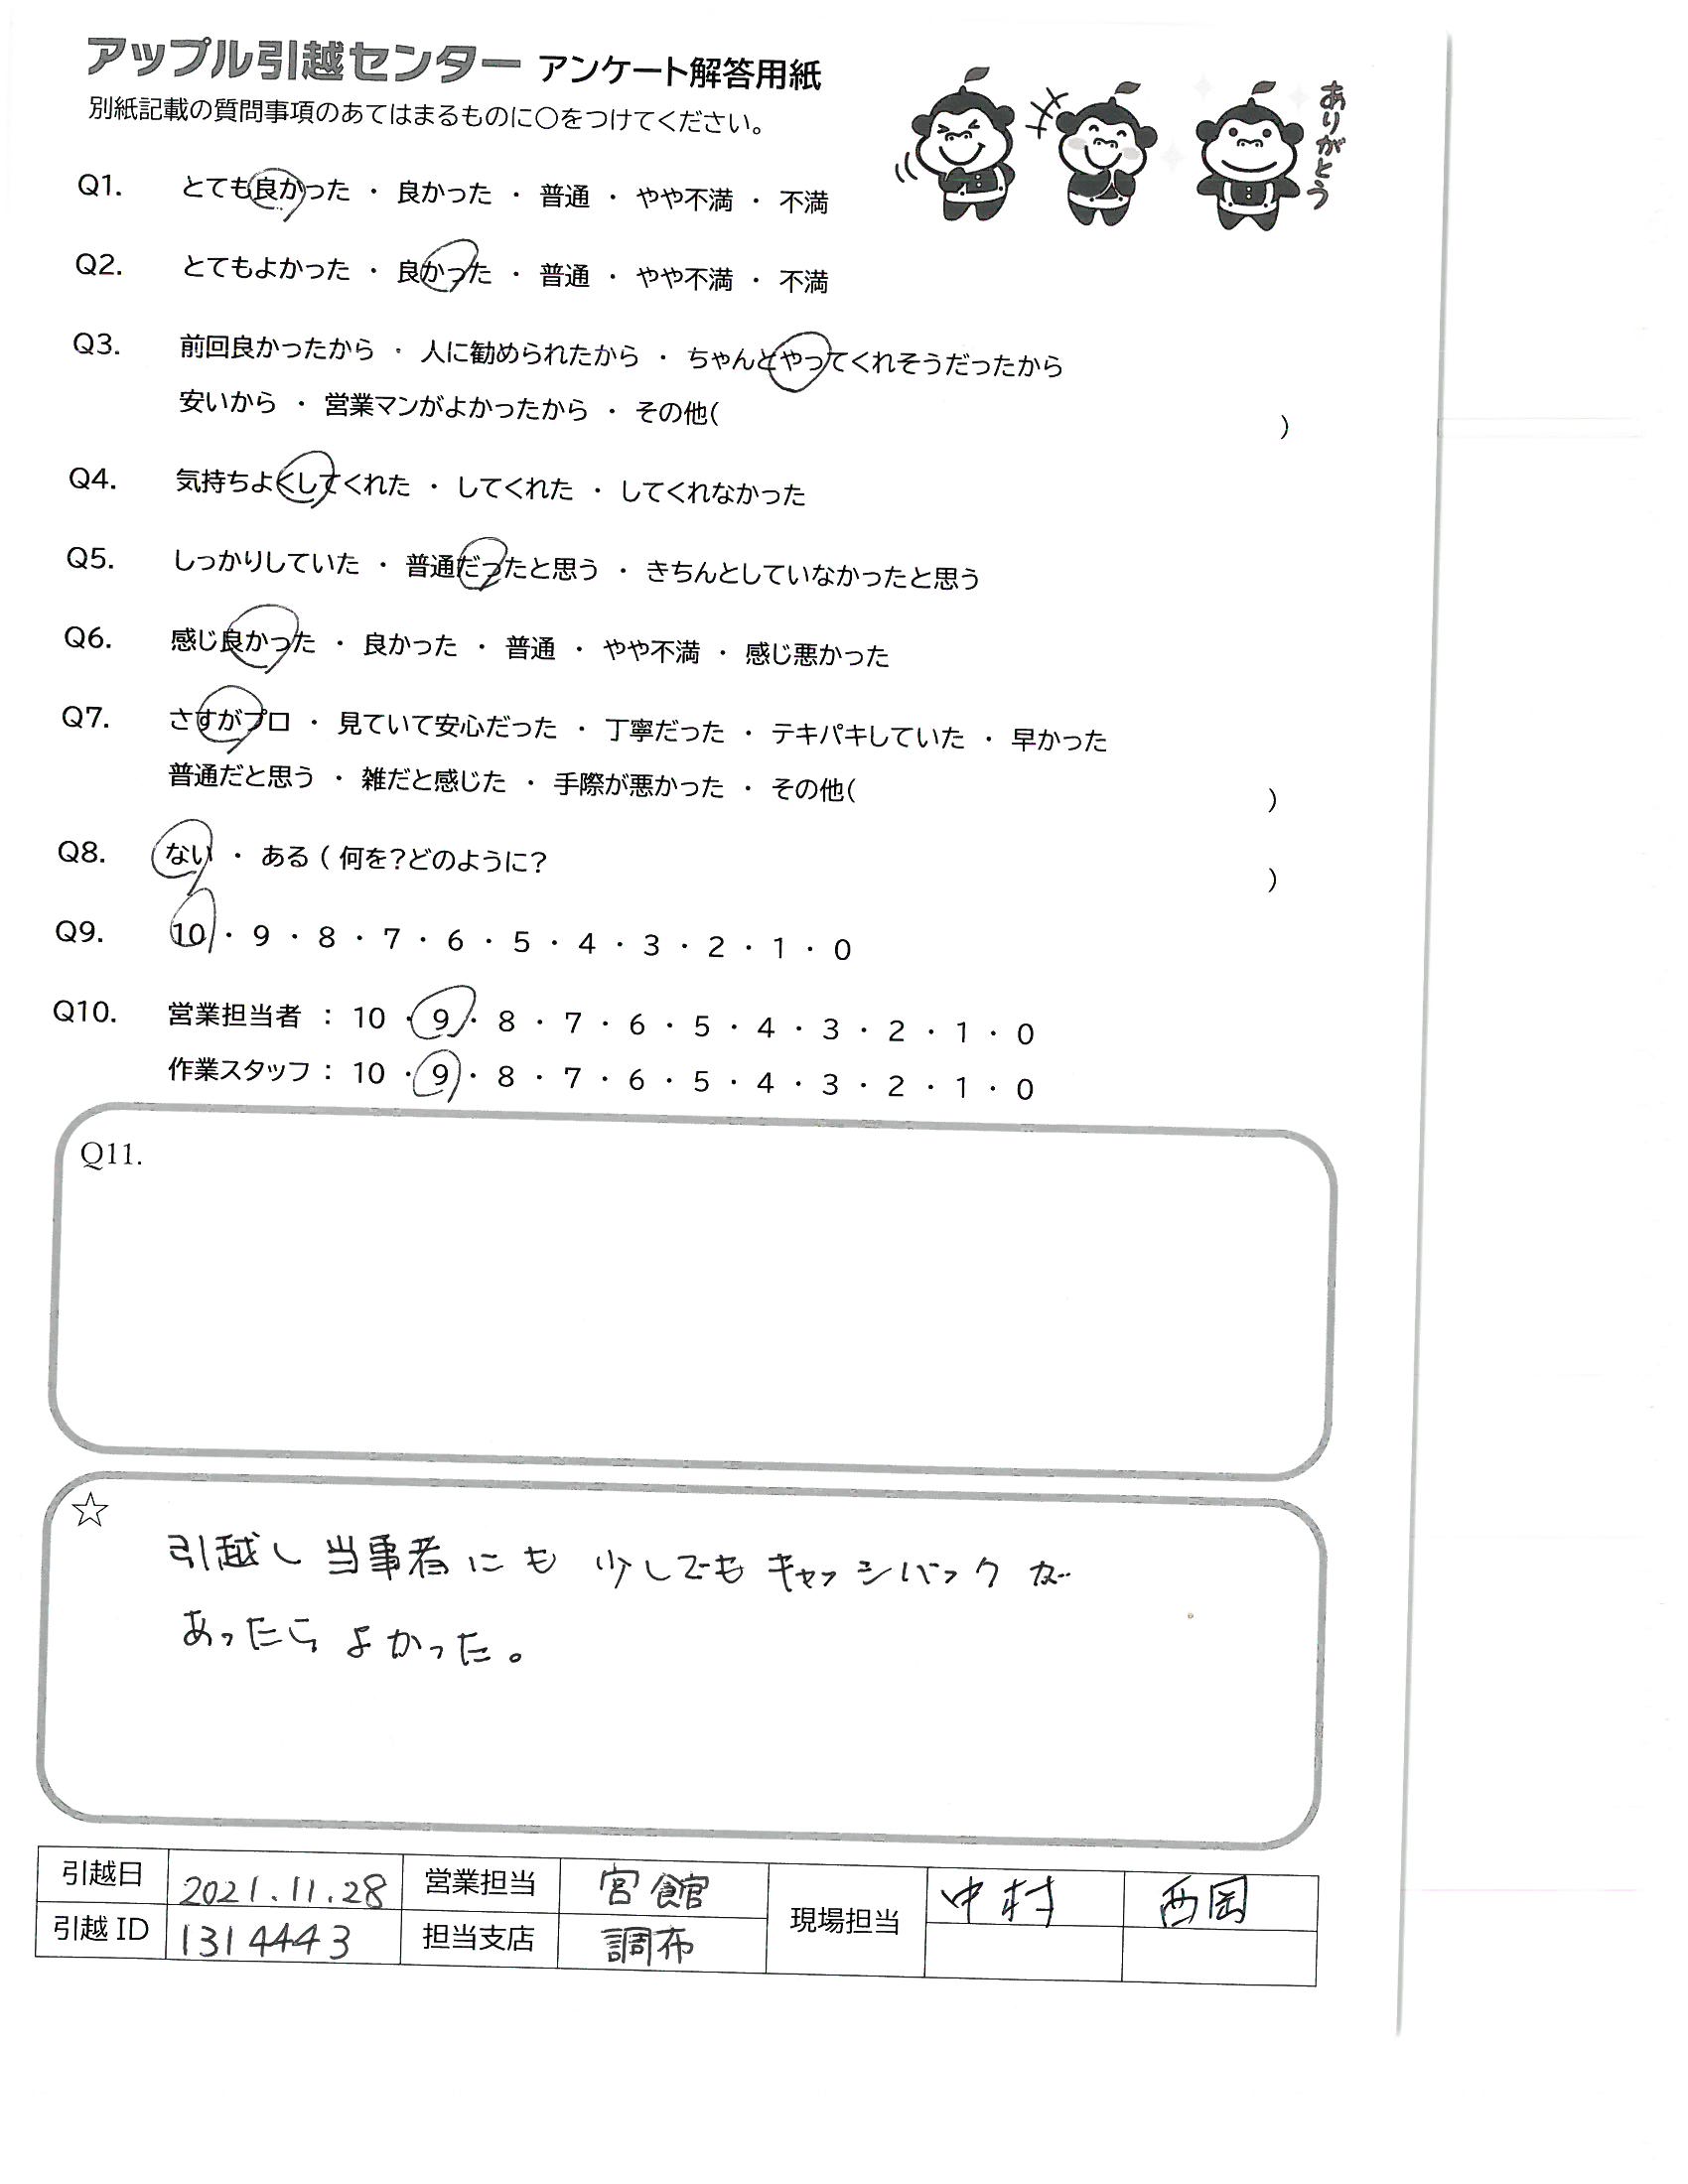 アップル引越センター アンケート解答用紙
別紙記載の質問事項のあてはまるものに〇をつけてください。
ありがとう
Q1. とても良かった ・ 良かった ・ 普通 ・ やや不満 ・ 不満
Q2. とてもよかった ・ 良かった ・ 普通 ・ やや不満 ・ 不満
Q3. 前回良かったから ・ 人に勧められたから ・ ちゃんとやってくれそうだったから
安いから ・ 営業マンがよかったから ・ その他( )
Q4. 気持ちよくしてくれた ・ してくれた ・ してくれなかった
Q5. しっかりしていた ・ 普通だったと思う ・ きちんとしていなかったと思う
Q6. 感じ良かった ・ 良かった ・ 普通 ・ やや不満 ・ 感じ悪かった
Q7. さすがプロ ・ 見ていて安心だった ・ 丁寧だった ・ テキパキしていた ・ 早かった
普通だと思う ・ 雑だと感じた ・ 手際が悪かった ・ その他( )
Q8. ない ・ ある ( 何を?どのように? )
Q9. 10 ・ 9 ・ 8 ・ 7 ・ 6 ・ 5 ・ 4 ・ 3 ・ 2 ・ 1 ・ 0
Q10. 営業担当者 : 10 ・ 9 ・ 8 ・ 7 ・ 6 ・ 5 ・ 4 ・ 3 ・ 2 ・ 1 ・ 0
作業スタッフ : 10 ・ 9 ・ 8 ・ 7 ・ 6 ・ 5 ・ 4 ・ 3 ・ 2 ・ 1 ・ 0
Q11.
☆
引越し当事者にも少しでもキャッシュバックが
あったらよかった。
引越日 2021.11.28 営業担当 宮舘 現場担当 中村 西岡
引越ID 1314443 担当支店 調布